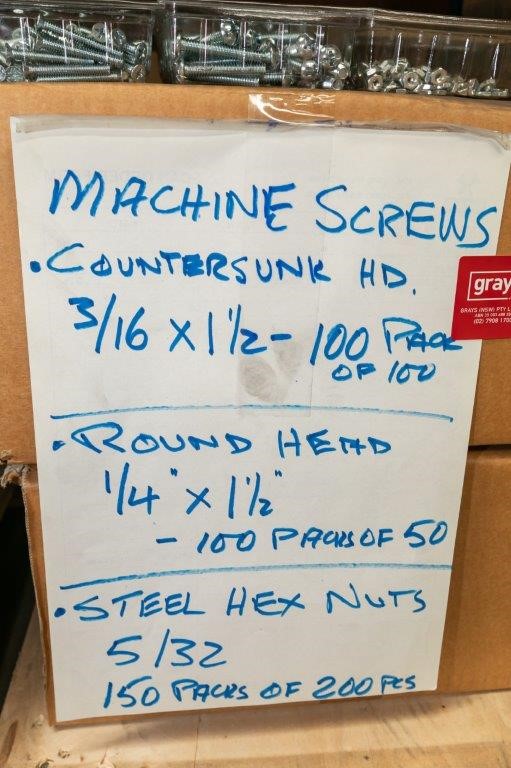 MACHINE SCREWS
• COUNTERSUNK HD.
3/16 X 1 1/2 - 100 PACK
OF 100
grays
GRAYS (NSW) PTY L
(02) 7908 170
• ROUND HEAD
1/4" X 1 1/2"
- 100 PACKS OF 50
• STEEL HEX NUTS
5/32
150 PACKS OF 200 PCS